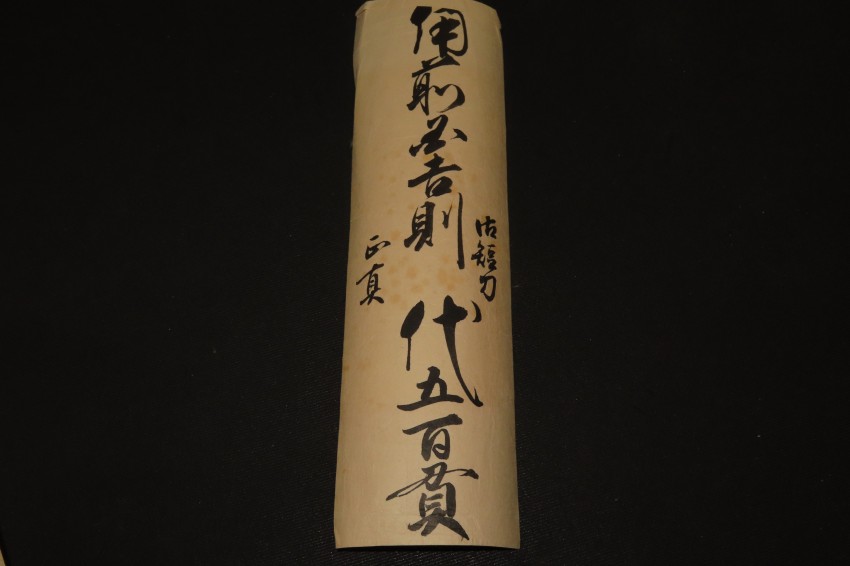 御短刀
備前国吉則 代五百貫
正真